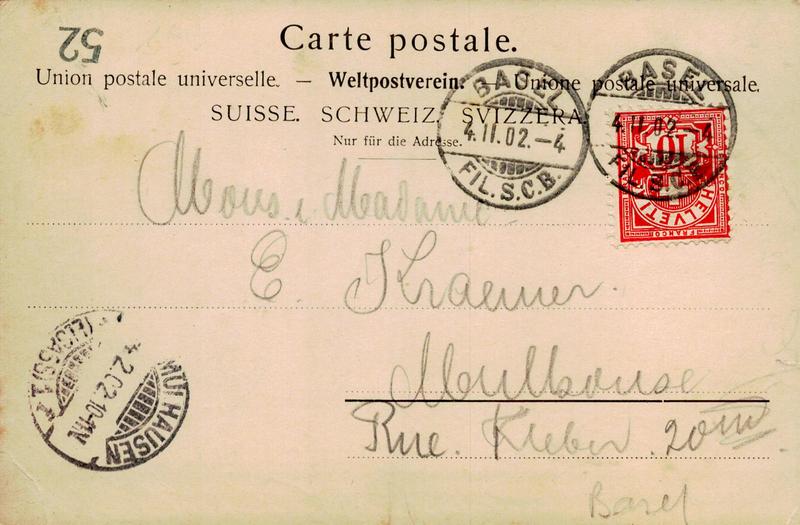 52
Carte postale.
Union postale universelle. — Weltpostverein. Unione postale universale.
SUISSE. SCHWEIZ. SVIZZERA
Nur für die Adresse.
BASEL
4.II.02.–4
FIL.S.C.B.
BASEL
4.II.02.–4
FIL.S.C.B.
10
HELVETIA
FRANCO
Mons. & Madame
E. Kraemer.
Mulhouse
Rue. Kleber. 20
Basel
MÜLHAUSEN
4.2.02.10-11N.
(ELSASS) 1